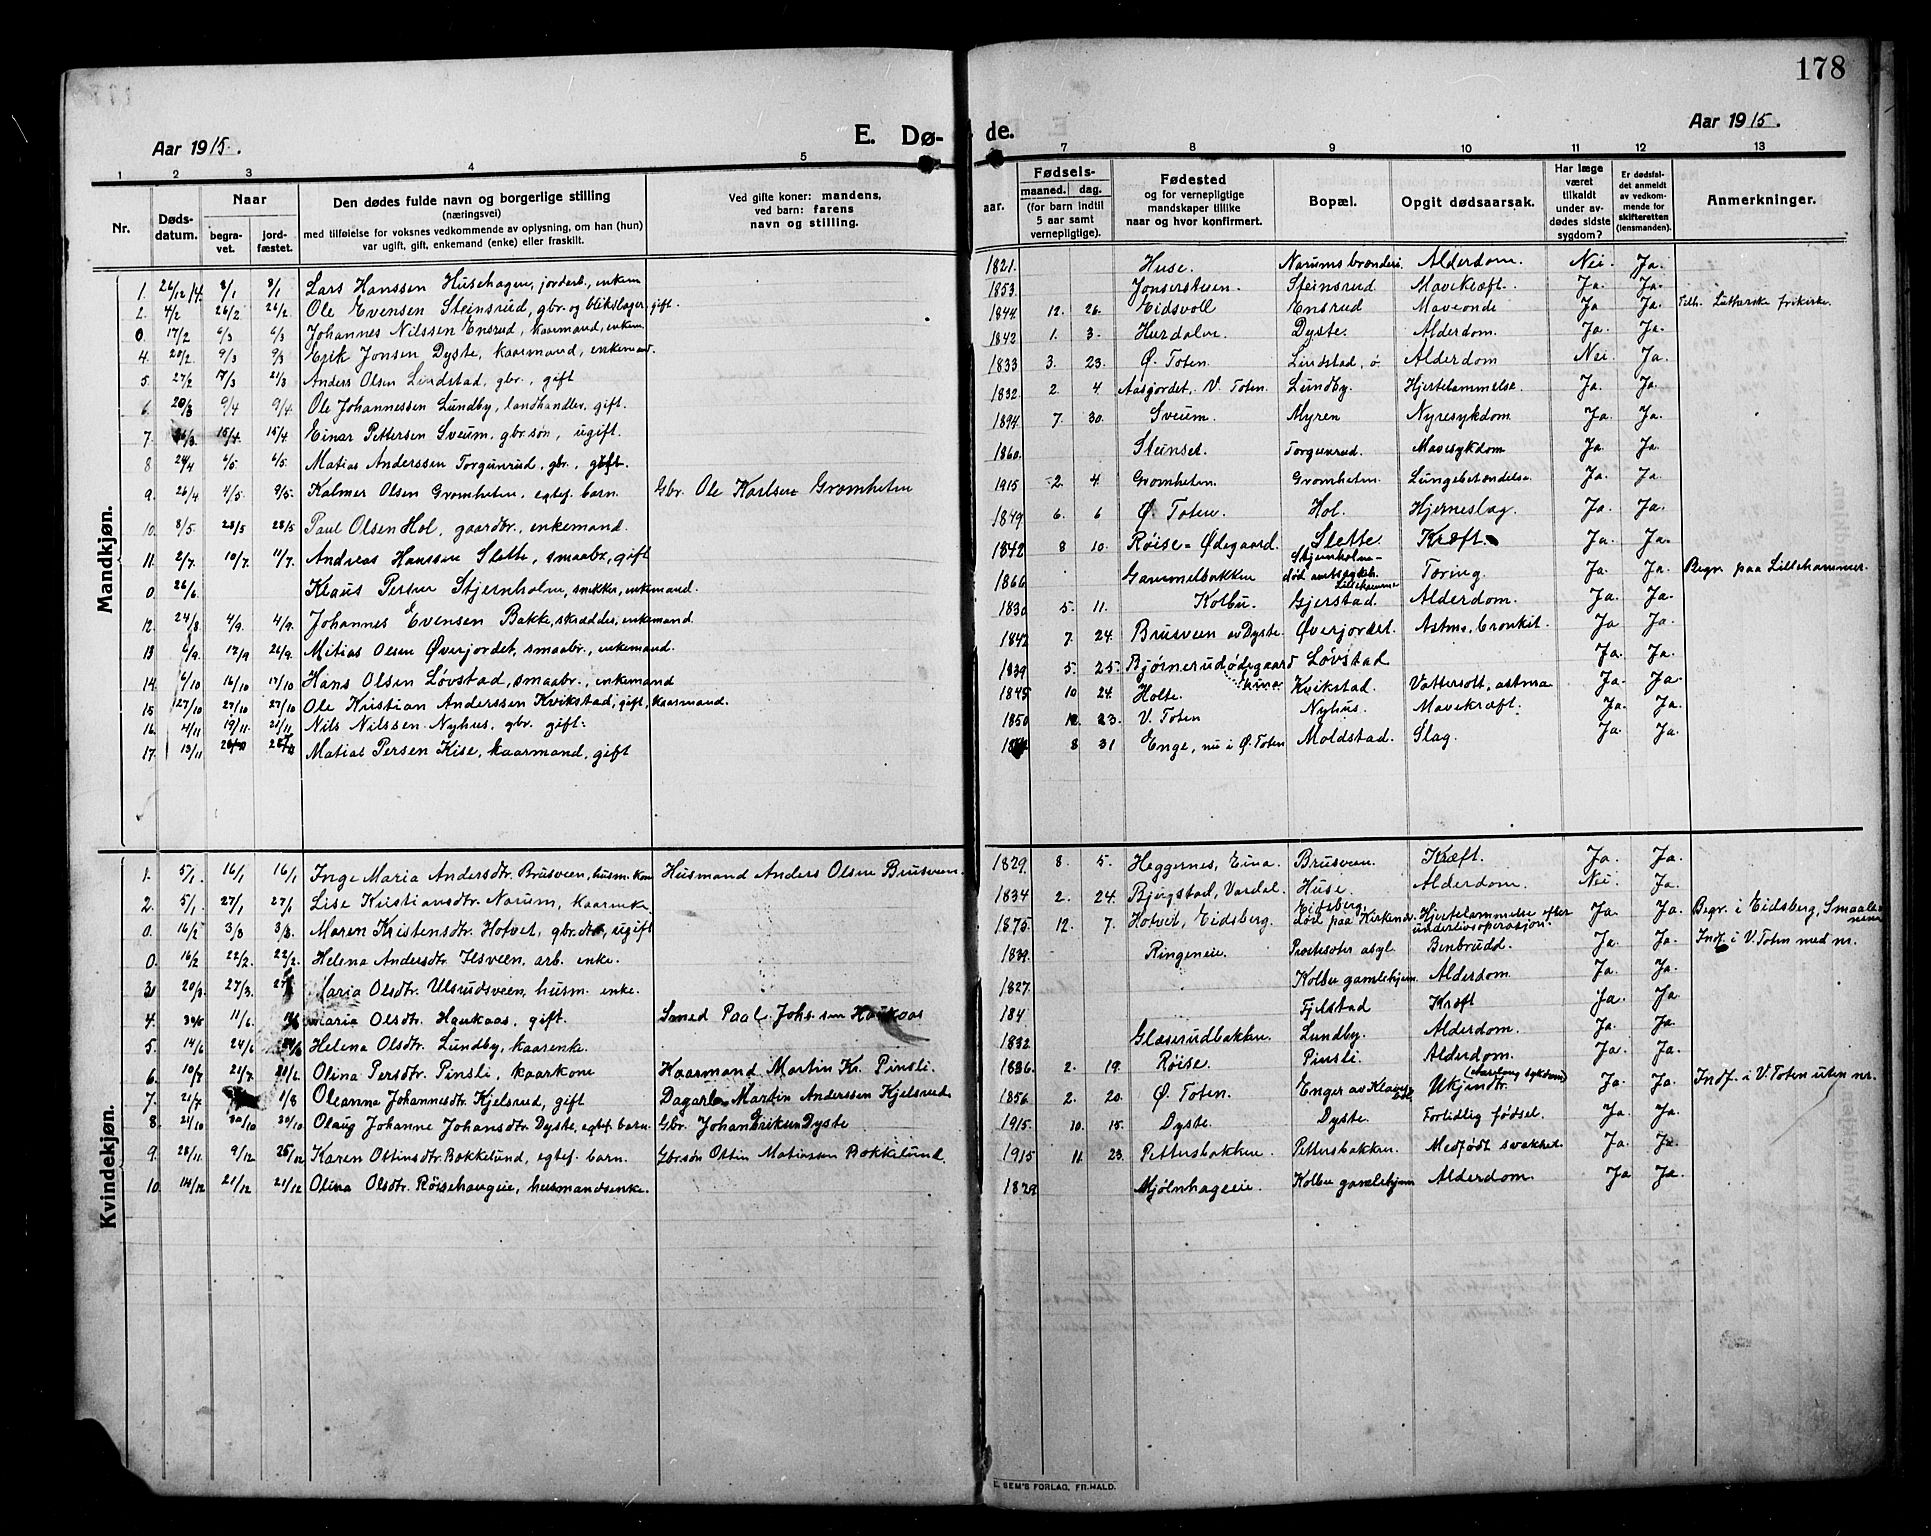 178
Aar 1915.
E. Dø-
de.
Aar 1915.
1 2 3 4 5 7 8 9 10 11 12 13
Nr.
Døds-
datum.
Naar
begra-
vet.
jord-
fæstet.
Den dødes fulde navn og borgerlige stilling
(næringsvei)
med tilføielse for voksnes vedkommende av oplysning, om han (hun)
var ugift, gift, enkemand (enke) eller fraskilt.
Ved gifte koner: mandens,
ved barn: farens
navn og stilling.
aar.
Fødsels-
maaned. dag.
(for barn indtil
5 aar samt
vernepligtige).
Fødested
og for vernepligtige
mandskaper tillike
naar og hvor konfirmert.
Bopæl.
Opgit dødsaarsak.
Har læge
været
tilkaldt
under av-
dødes sidste
sygdom?
Er dødsfal-
det anmeldt
av vedkom-
mende for
skifteretten
(lensmanden).
Anmerkninger.
Mandkjøn.
1. 26/12 14. 8/1 8/1 Lars Hanssen Husehagen, jorderb., enkem 1821. Huse. Narumsbrænderi Alderdom. Nei. Ja.
2. 4/2 26/2 26/2 Ole Evensen Steinsrud, gbr. og blikslager, gift. 1853. Jonsersteen. Steinsrud Mavekræft. Ja. Ja.
0. 17/2 6/3 6/3 Johannes Nilssen Ensrud, kaarmand, enkem. 1844. 12. 26. Eidsvoll Ensrud Maveonde Ja Ja. Tilh. Lutherske frikirke.
4. 20/2 9/3 9/3 Erik Jonsen Dyste, kaarmand, enkemand. 1842. 1. 3. Hurdalve. Dyste. Alderdom. Ja. Ja.
5. 27/2 17/3 21/3 Anders Olsen Lindstad, gbr., gift 1833 3. 23. Ø. Toten. Lindstad, ø Alderdom Nei. Ja.
6. 20/3 9/4 9/4. Ole Johannessen Lundby, landhandler, gift. 1832. 2 4. Aasgjordet, V. Toten. Lundby. Hjertelammelse. Ja. Ja.
7. 15/4. 15/4 Einar Pettersen Sveum, gbr.søn, ugift. 1894. 7. 30. Sveum. Myren Nyresykdom Ja. Ja.
8 24/4 6/5. 6/5. Matias Anderssen Torgunrud, gbr., gift. 1860. Stenset. Torgunrud. Mavesykdom Ja. Ja.
9. 26/4 4/5. 9/5. Kalmer Olsen Gromheten, egtef. barn. Gbr. Ole Karlsen Gromheten 1915 2. 4. Gromheten. Gromheten. Lungebetændelse. Ja. Ja.
10. 8/5. 28/5 28/5 Paul Olsen Hol, gaardbr., enkemand. 1849. 6. 6 Ø. Toten. Hol. Hjerneslag. Ja. Ja.
11. 2/7. 10/7. 11/7. Andreas Hanssen Slette, smaabr., gift 1842 8 10. Røise-Ødegaard. Slette. Kræft. Ja. Ja.
0. 26/6. Klaus Persen Stjernholm, snikker, enkemand. 1866 Gammelbakken Stjernholm- død amtssykeh. Lillehammer Tæring. Ja. Ja. Begr. paa Lillehammer.
12. 24/8 4/9. 4/9. Johannes Evensen Bakke, skrædder, enkemand 1830 5. 11. Kolbu. Gjerstad. Alderdom. Ja. Ja.
13 6/9. 17/9 26/9. Mitias Olsen Øverjordet, smaabr., enkemand. 1842 7. 24. Brusveen av Dyste Øverjordet. Astma, bronkit. Ja Ja.
14. 4/10 16/10 17/10 Hans Olsen Løvstad, smaabr., enkemand 1839 5. 25. Bjørnerudødegaard Løvstad Ja. Ja.
15. 27/10 27/10 27/10 Ole Kristian Anderssen Kvikstad, gift, kaarmand. 1845 10 24. Holte. Kvikstad. Vattersott, astma Ja. Ja.
16. 4/11 19/11. 21/11 Nils Nilssen Nyhus, gbr. gift. 1850 12. 23. V. Toten Nyhus. Mavekræft. Ja. Ja.
17. 13/11 Matias Persen Kise, kaarmand, gift 8 31 Enge, nu i Ø. Toten Moldstad. Slag. Ja Ja.
Kvindekjøn.
1. 5/1. 16/1 16/1 Inge Maria Andersdtr. Brusveen, husm.kone Husmand Anders Olsen Brusveen. 1829. 8. 5. Heggernes, Eina. Brusveen. Kræft. Ja. Ja.
2. 5/1. 27/1 27/1 Lise Kristiansdtr. Narum, kaarenke 1834 2. 24. Bjugstad, Vardal. Huse. Alderdom. Nei. Ja.
0. 16/2 3/3 3/3. Maren Kristensdtr. Hofvet, gbr.dtr., ugift 1875. 12. 7. Hofvet, Eidsberg. Eidsberg, død paa Kirkenær. Hjertelammelse efter underlivsoperasjon. Ja. Ja. Begr. i Eidsberg, Smaalenene
0. 16/2 22/2. 22/2. Helena Andersdtr. Ilsveen, arb. enke. 1839. Ringeneie. Prestesæter asyl. Benbrudd. Ja. Ja. Indf. i V. Toten med nr.
3. 20/3. 27/3. Maria Olsdtr. Ulsrudsveen, husm. enke. 1827. Kolbu gamlehjem Alderdom Ja. Ja.
4. 11/6. Maria Olsdtr. Haukaas, gift. Smed Paal Johs.sen Haukaas 184 Fjelstad Kræft Ja. Ja
5. 14/6 24/6 Helena Olsdtr. Lundby, kaarenke. 1832 Glæserudbakken. Lundby. Alderdom. Ja. Ja.
6. 10/7 21/7. Olina Persdtr. Pinsli, kaarkone Kaarmand Martin Kr. Pinsli. 1836 2. 19. Røise. Pinsli. Alderdom Ja. Ja.
7. 21/7 1/8 Oleanna Johannesdtr. Kjelsrud, gift Dagarb. Martin Anderssen Kjelsrud. 1856 2. 20. Ø. Toten. Ukjendt. Ja. Ja. Indf. i V. Toten uten nr.
8. 21/10 20/10 20/10 Olaug Johanne Johansdtr. Dyste, egtef. barn. Gbr. Johan Eriksen Dyste 1915. 10. 15. Dyste. Dyste Fortidlig fødsel. Ja. Ja.
9. 28/11. 9/12. 25/12 Karen Ottinsdtr. Bakkelund, egtef. barn. Gbrsøn Ottin Matiassen Bakkelund. 1915 11. 23. Pettersbakken. Pettersbakken. Medfødt svakhet. Ja. Ja.
10. 14/12 21/12 21/12 Olina Olsdtr. Røisehaugeie, husmandsenke. 1829 Mjølnhageeie. Kolbu gamlehjem Alderdom. Ja Ja.
SEM'S FORLAG, FR.HALD.